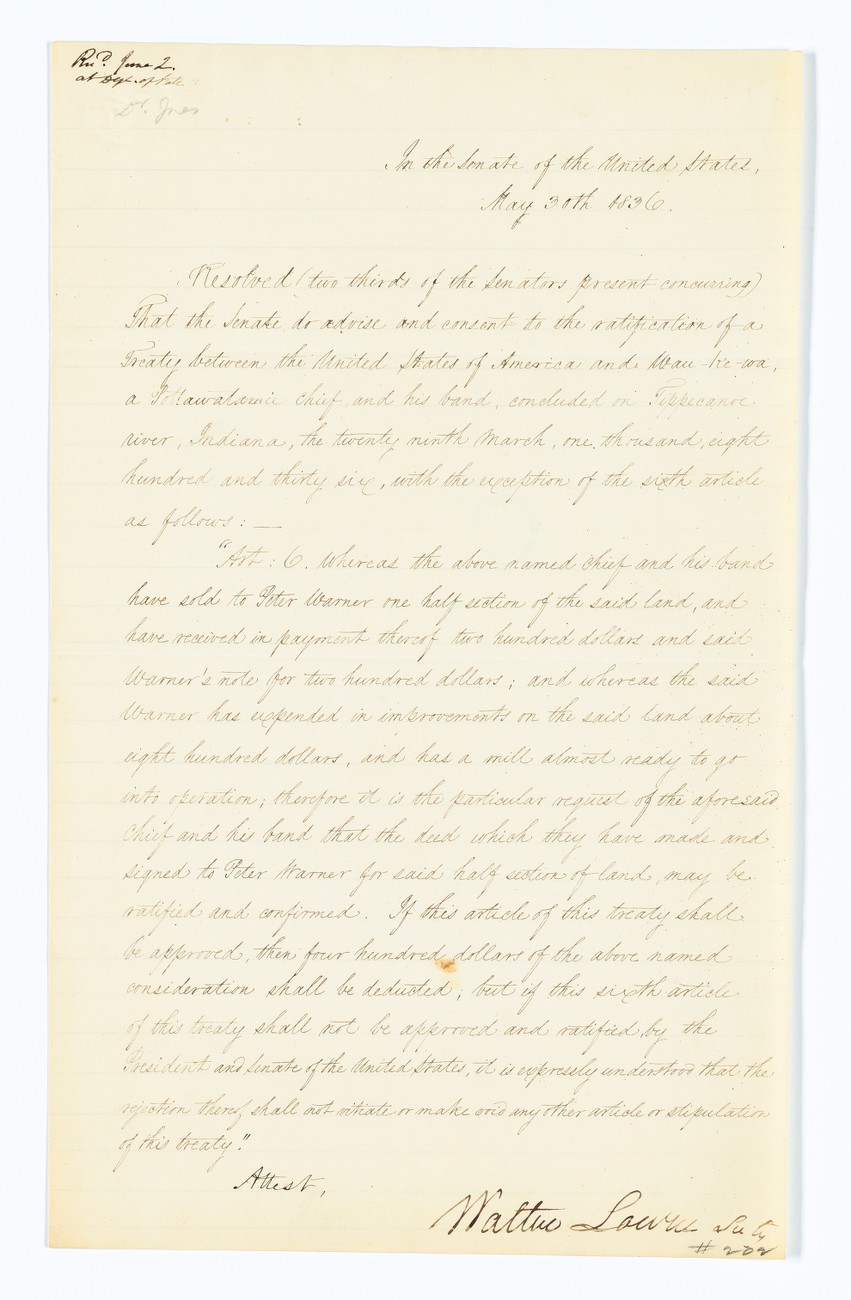 Recd. June 2.
at Dept. of State
In the Senate of the United States,
May 30th 1836.
Resolved (two thirds of the Senators present concurring)
That the Senate do advise and consent to the ratification of a
Treaty between the United States of America and Wau-ke-wa,
a Pottawatamie chief and his band, concluded on Tippecanoe
river, Indiana, the twenty ninth March, one thousand, eight
hundred and thirty six, with the exception of the sixth article
as follows: —
"Art: 6. whereas the above named chief and his band
have sold to Peter Warner one half section of the said land, and
have received in payment thereof two hundred dollars and said
Warner's note for two hundred dollars; and whereas the said
Warner has expended in improvements on the said land about
eight hundred dollars, and has a mill almost ready to go
into operation; therefore it is the particular request of the aforesaid
Chief and his band that the deed which they have made and
signed to Peter Warner for said half section of land, may be
ratified and confirmed. If this article of this treaty shall
be approved, then four hundred dollars of the above named
consideration shall be deducted; but if this sixth article
of this treaty shall not be approved and ratified by the
President and Senate of the United States, it is expressly understood that the
rejection thereof shall not vitiate or make void any other article or stipulation
of this treaty."
Attest,
Walter Lowrie Secty
# 202